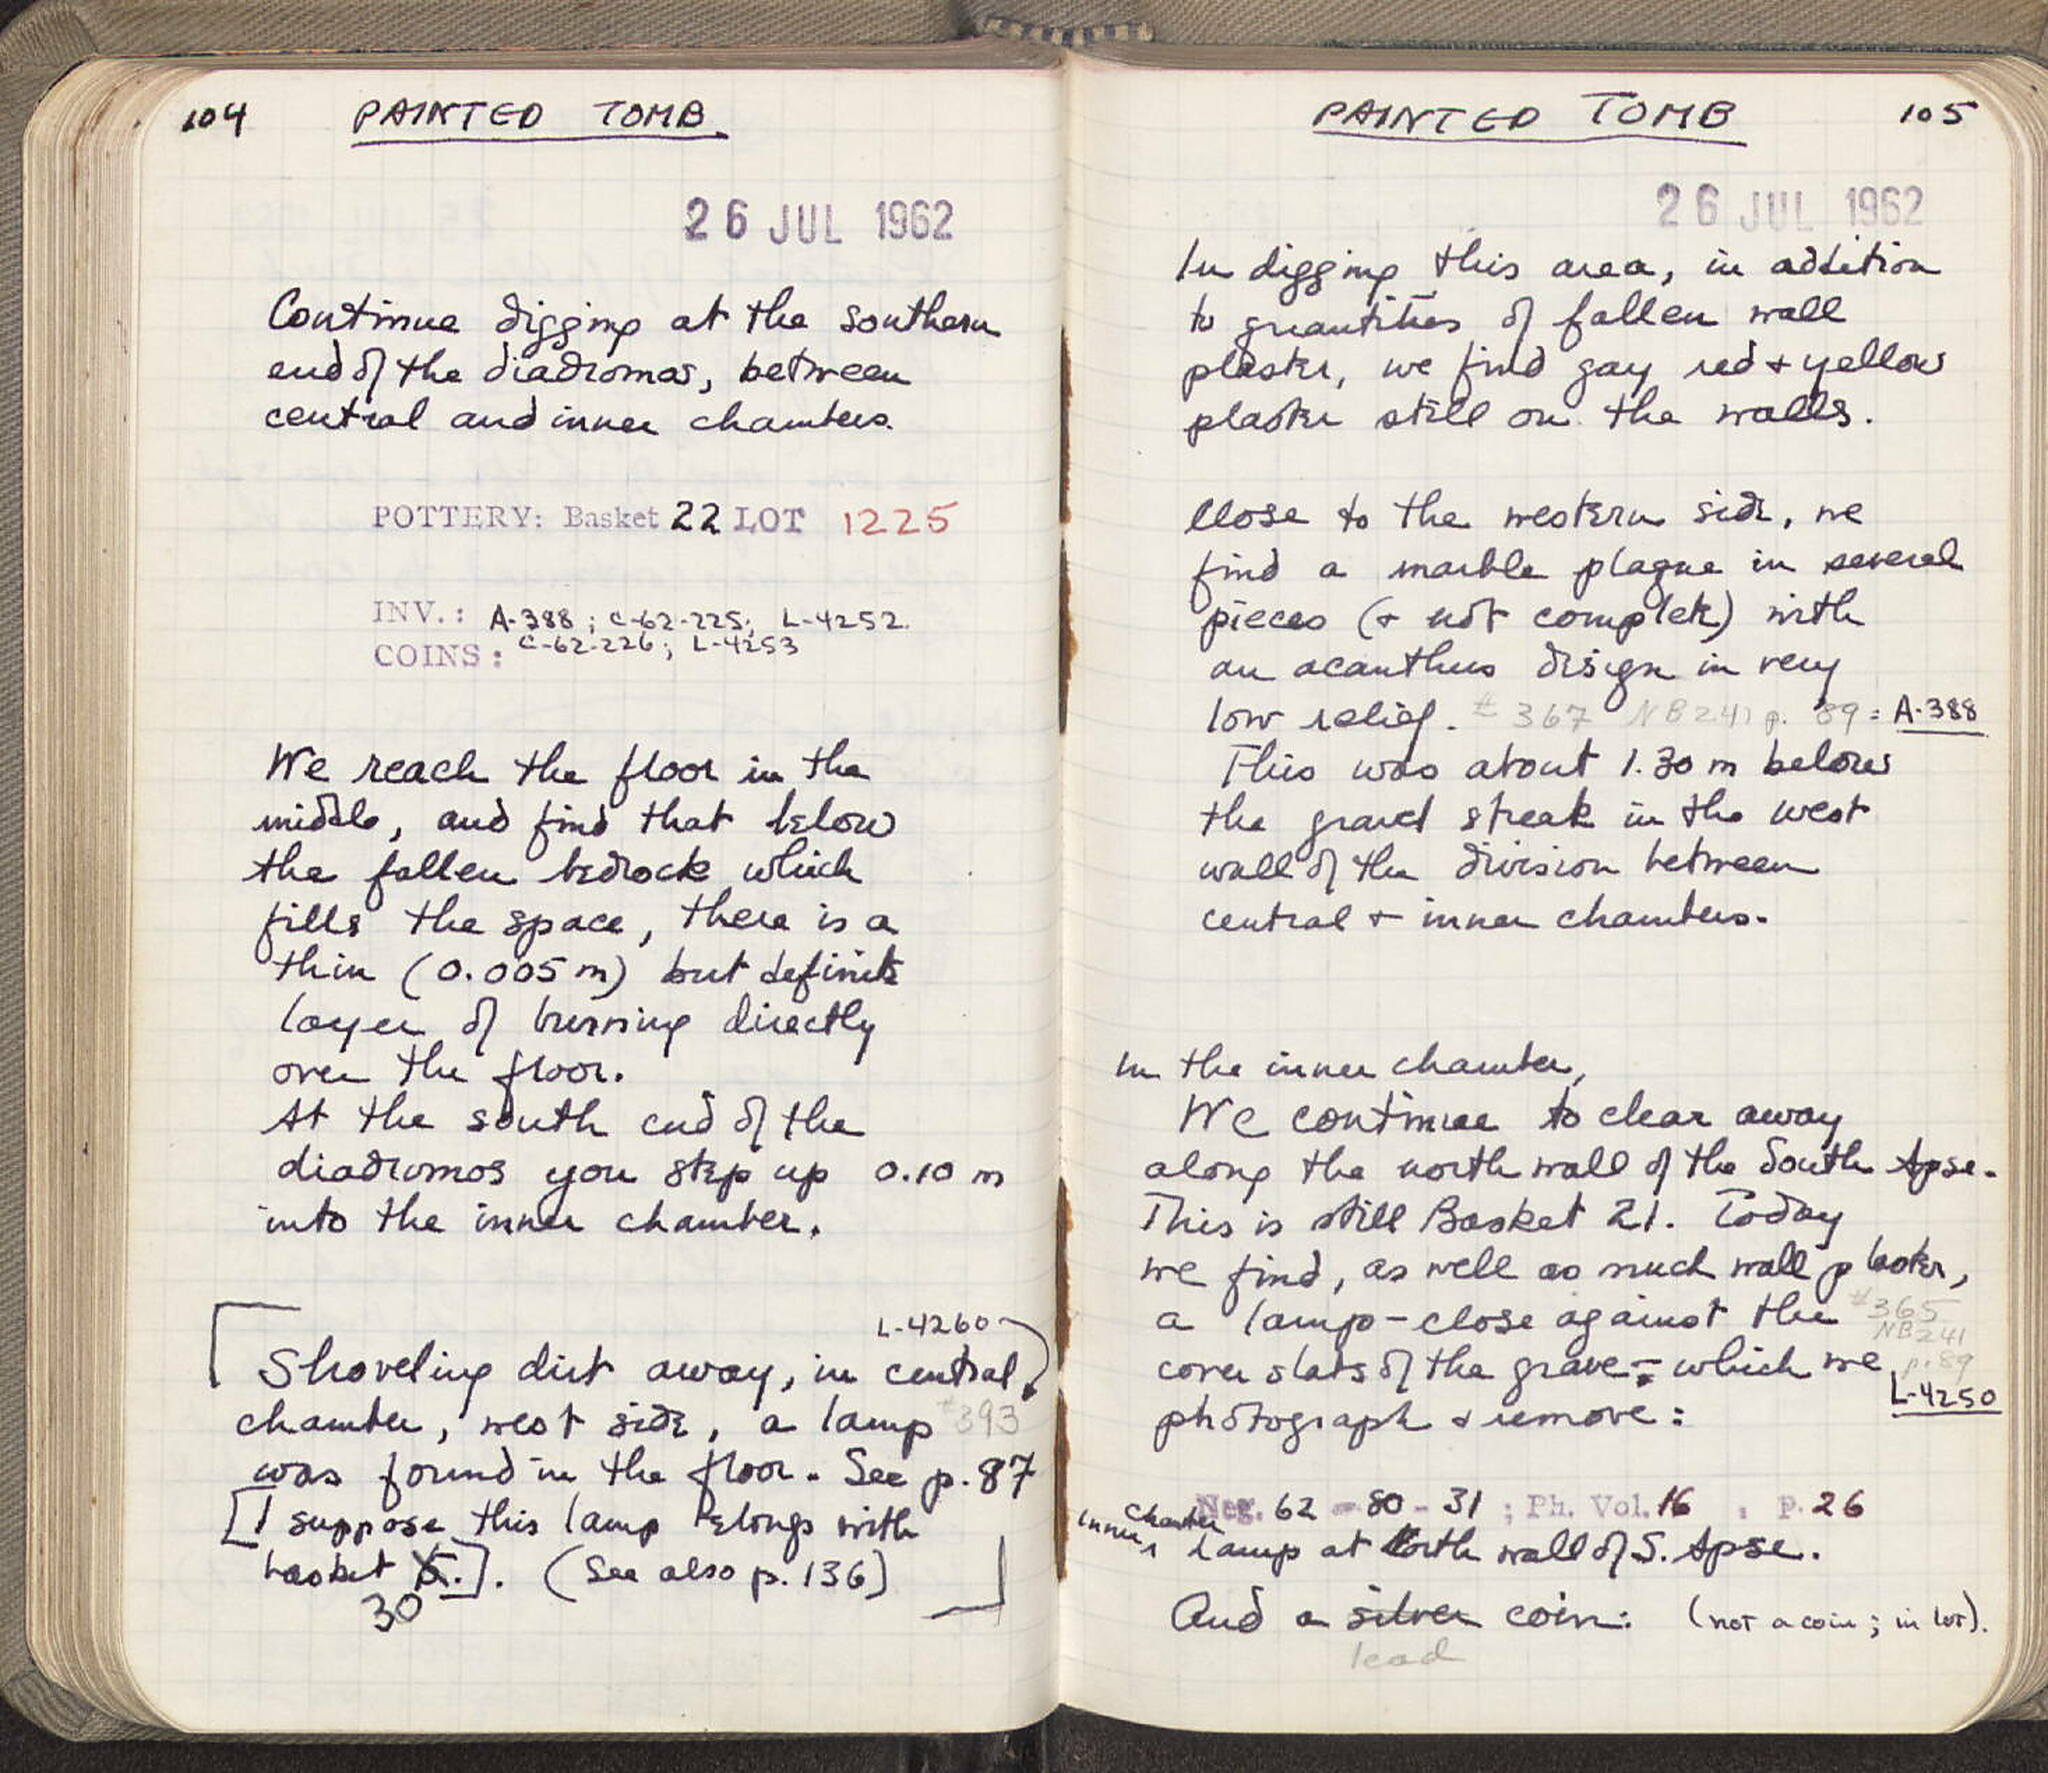 104 PAINTED TOMB
26 JUL 1962
Continue digging at the southern
end of the diadromos, between
central and inner chambers.
POTTERY: Basket 22 LOT 1225
INV.: A-388; C-62-225; L-4252
COINS: C-62-226; L-4253
We reach the floor in the
middle, and find that below
the fallen bedrock which
fills the space, there is a
thin (0.005 m) but definite
layer of burning directly
over the floor.
At the south end of the
diadromos you step up 0.10 m
into the inner chamber.
L-4260
Shoveling dirt away, in central
chamber, west side, a lamp #393
was found in the floor. See p. 87
[I suppose this lamp belongs with
basket 5.]. (See also p. 136)
30
PAINTED TOMB 105
26 JUL 1962
In digging this area, in addition
to quantities of fallen wall
plaster, we find gay red + yellow
plaster still on the walls.
Close to the western side, we
find a marble plaque in several
pieces (+ not complete) with
an acanthus design in very
low relief. # 367 NB 241 p. 89 = A-388
This was about 1.30 m below
the gravel streak in the west
wall of the division between
central + inner chambers.
In the inner chamber,
We continue to clear away
along the north wall of the South Apse.
This is still Basket 21. Today
we find, as well as much wall plaster,
a lamp - close against the #365
NB 241
cover slabs of the grave - which we p. 89
L-4250
photograph + remove:
Neg. 62 - 80 - 31 ; Ph. Vol. 16 , p. 26
inner chamber Lamp at North wall of S. Apse.
And a silver coin: (not a coin; in lot).
lead